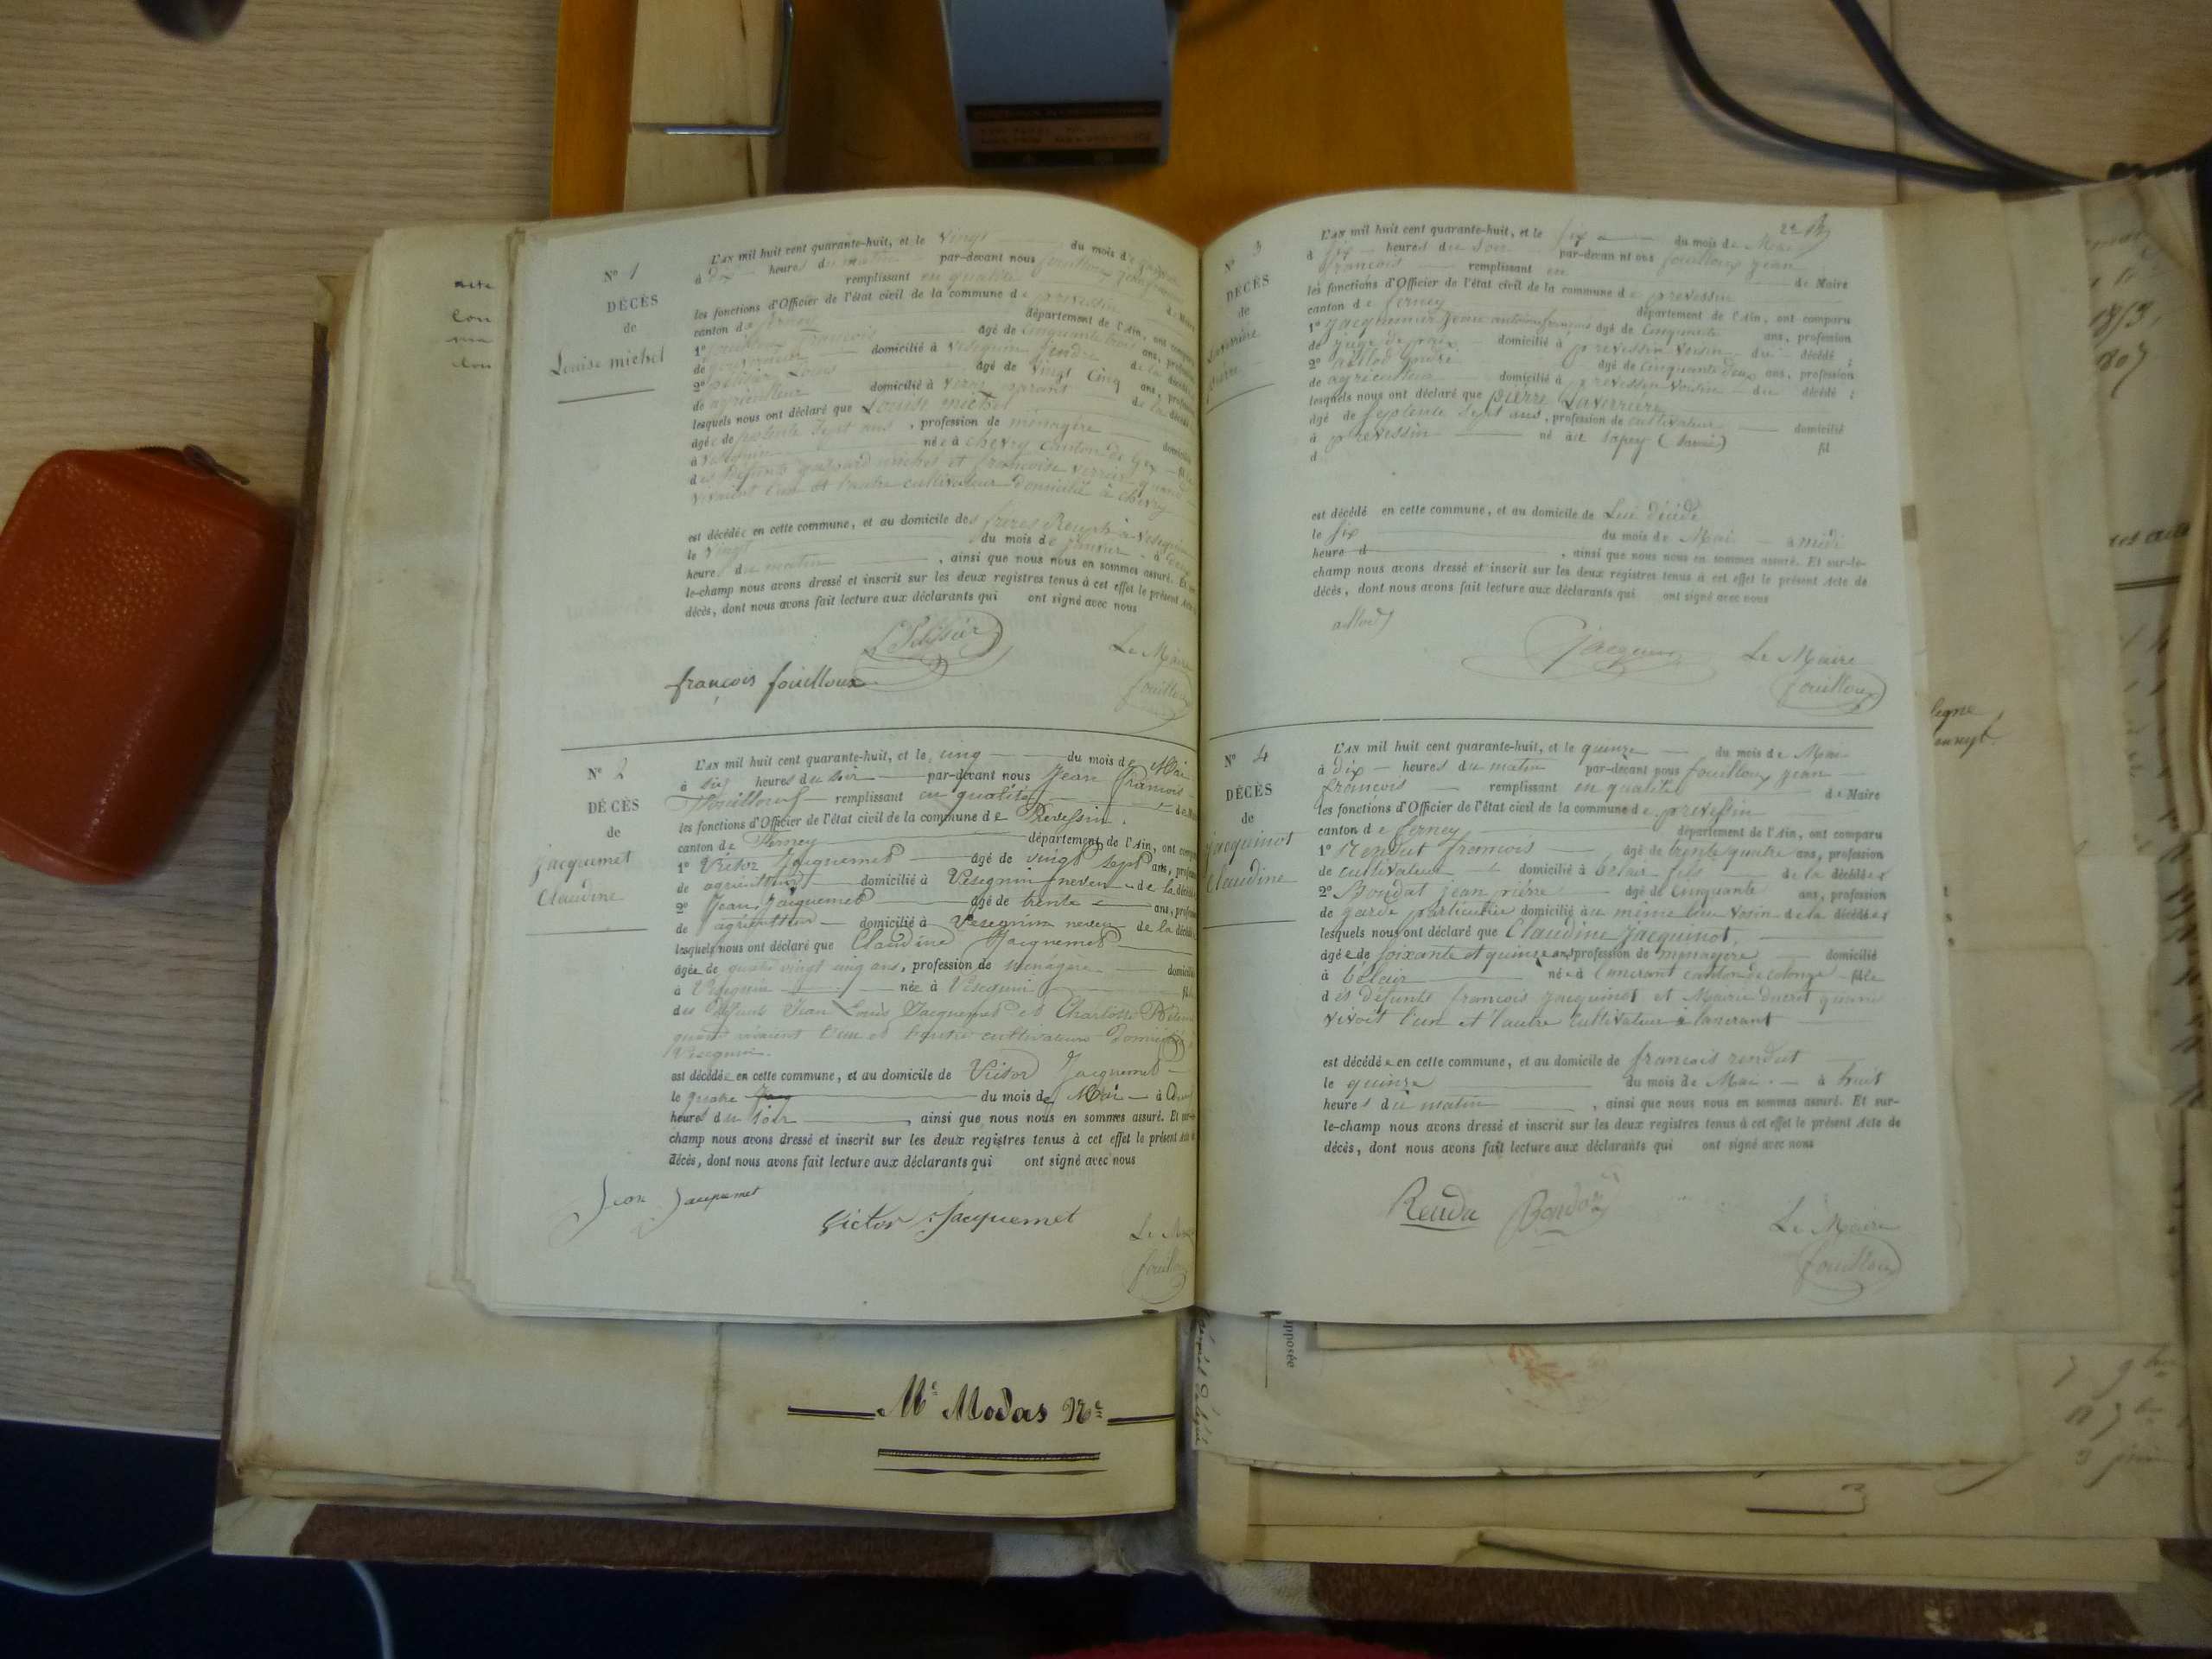 N° 1
DÉCÈS
de
Louise michel
L'AN mil huit cent quarante-huit, et le vingt du mois de
à dix heures du matin par-devant nous fouilloux jean francois
remplissant en qualité de Maire
les fonctions d'Officier de l'état civil de la commune de prevessin
canton de ferney département de l'Ain, ont comparu
1° fouilloux francois âgé de cinquante trois ans, profession
de domicilié à vesegnin gendre de la décédée
2° pelissier Louis âgé de vingt cinq ans, profession
de agriculteur domicilié à de la décédée
lesquels nous ont déclaré que Louise michel
âgée de septente sept ans, profession de ménagère domiciliée
à vesegnin née à chevry canton de Gex fille
des défunts gaspard michel et francoise verrier quand
vivaient l'un et l'autre cultivateur domicilié à chevry
est décédée en cette commune, et au domicile des frères à vesegnin
le vingt du mois de janvier à
heure du matin, ainsi que nous nous en sommes assuré. Et sur-
le-champ nous avons dressé et inscrit sur les deux registres tenus à cet effet le présent Acte de
décès, dont nous avons fait lecture aux déclarants qui ont signé avec nous
françois fouilloux
Le Maire
fouilloux
N° 2
DÉCÈS
de
jacquemet
Claudine
L'AN mil huit cent quarante-huit, et le cinq du mois de Mai
à six heures du soir par-devant nous Jean Francois
Fouilloux remplissant en qualité de Maire
les fonctions d'Officier de l'état civil de la commune de Prevessin
canton de Ferney département de l'Ain, ont comparu
1° Victor Jacquemet âgé de vingt sept ans, profession
de agriculteur domicilié à Vesegnin neveu de la décédée
2° Jean Jacquemet âgé de trente ans, profession
de agriculteur domicilié à Vesegnin neveu de la décédée
lesquels nous ont déclaré que Claudine Jacquemet
âgée de quatre vingt cinq ans, profession de ménagère domiciliée
à Vesegnin née à Vesegnin fille
des défunts Jean Louis Jacquemet et Charlotte
quand vivaient l'un et l'autre cultivateurs domiciliés à
Vesegnin.
est décédée en cette commune, et au domicile de Victor Jacquemet
le quatre du mois de Mai à
heures du soir, ainsi que nous nous en sommes assuré. Et sur-le-
champ nous avons dressé et inscrit sur les deux registres tenus à cet effet le présent Acte de
décès, dont nous avons fait lecture aux déclarants qui ont signé avec nous
Jean Jacquemet
Victor Jacquemet
Le Maire
fouilloux
Me Modas Nre
N° 3
DÉCÈS
de
Laverrière
pierre
L'AN mil huit cent quarante-huit, et le six du mois de Mai
à six heures du soir par-devant nous fouilloux jean
francois remplissant en de Maire
les fonctions d'Officier de l'état civil de la commune de prevessin
canton de ferney département de l'Ain, ont comparu
1° Jacquemier âgé de cinquante ans, profession
de juge de paix domicilié à prevessin voisin du décédé ;
2° allod andré âgé de cinquante deux ans, profession
de agriculteur domicilié à prevessin voisin du décédé ;
lesquels nous ont déclaré que pierre Laverrière
âgé de septente sept ans, profession de cultivateur domicilié
à prevessin né au sapey (Savoie) fil
d
est décédé en cette commune, et au domicile de Lui décédé
le six du mois de Mai à midi
heure d, ainsi que nous nous en sommes assuré. Et sur-le-
champ nous avons dressé et inscrit sur les deux registres tenus à cet effet le présent Acte de
décès, dont nous avons fait lecture aux déclarants qui ont signé avec nous
allod
Le Maire
fouilloux
N° 4
DÉCÈS
de
jacquinot
Claudine
L'AN mil huit cent quarante-huit, et le quinze du mois de Mai
à dix heures du matin par-devant nous fouilloux jean
francois remplissant en qualité de Maire
les fonctions d'Officier de l'état civil de la commune de prevessin
canton de ferney département de l'Ain, ont comparu
1° Rendut francois âgé de trente quatre ans, profession
de cultivateur domicilié à bélair fils de la décédée
2° Boudat jean pierre âgé de cinquante ans, profession
de garde particulier domicilié au même lieu voisin de la décédée
lesquels nous ont déclaré que Claudine jacquinot,
âgée de soixante et quinze ans, profession de menagere domicilié
à bélair née à Lancrant canton de colonge fille
des défunts francois jacquinot et Marie ducrot quand
vivoit l'un et l'autre cultivateur à lancrant
est décédée en cette commune, et au domicile de francois rendut
le quinze du mois de Mai à huit
heures du matin, ainsi que nous nous en sommes assuré. Et sur-
le-champ nous avons dressé et inscrit sur les deux registres tenus à cet effet le présent Acte de
décès, dont nous avons fait lecture aux déclarants qui ont signé avec nous
Rendu Boudat
Le Maire
fouilloux
pposée